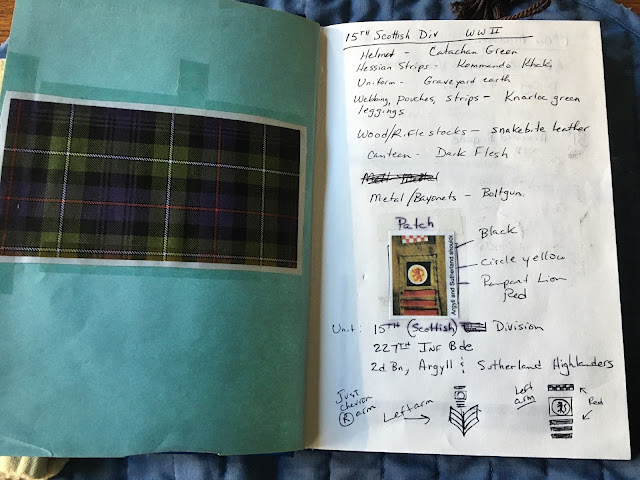 15TH Scottish Div WW II
Helmet - Catachan Green
Hessian Strips - Kommando Khaki
Uniform - Graveyard earth
Webbing, pouches, strips - Knarloc green
leggings
Wood/Rifle stocks - snakebite leather
Canteen - Dark Flesh
Metal/Bayonets - Boltgun
Patch
Black
Circle yellow
Rampant Lion
Red
Argyll and Sutherland
Unit: 15TH (Scottish) Division
227TH Inf Bde
2d Bn, Argyll & Sutherland Highlanders
Just
chevron
R arm
Left arm
Left
arm
Red